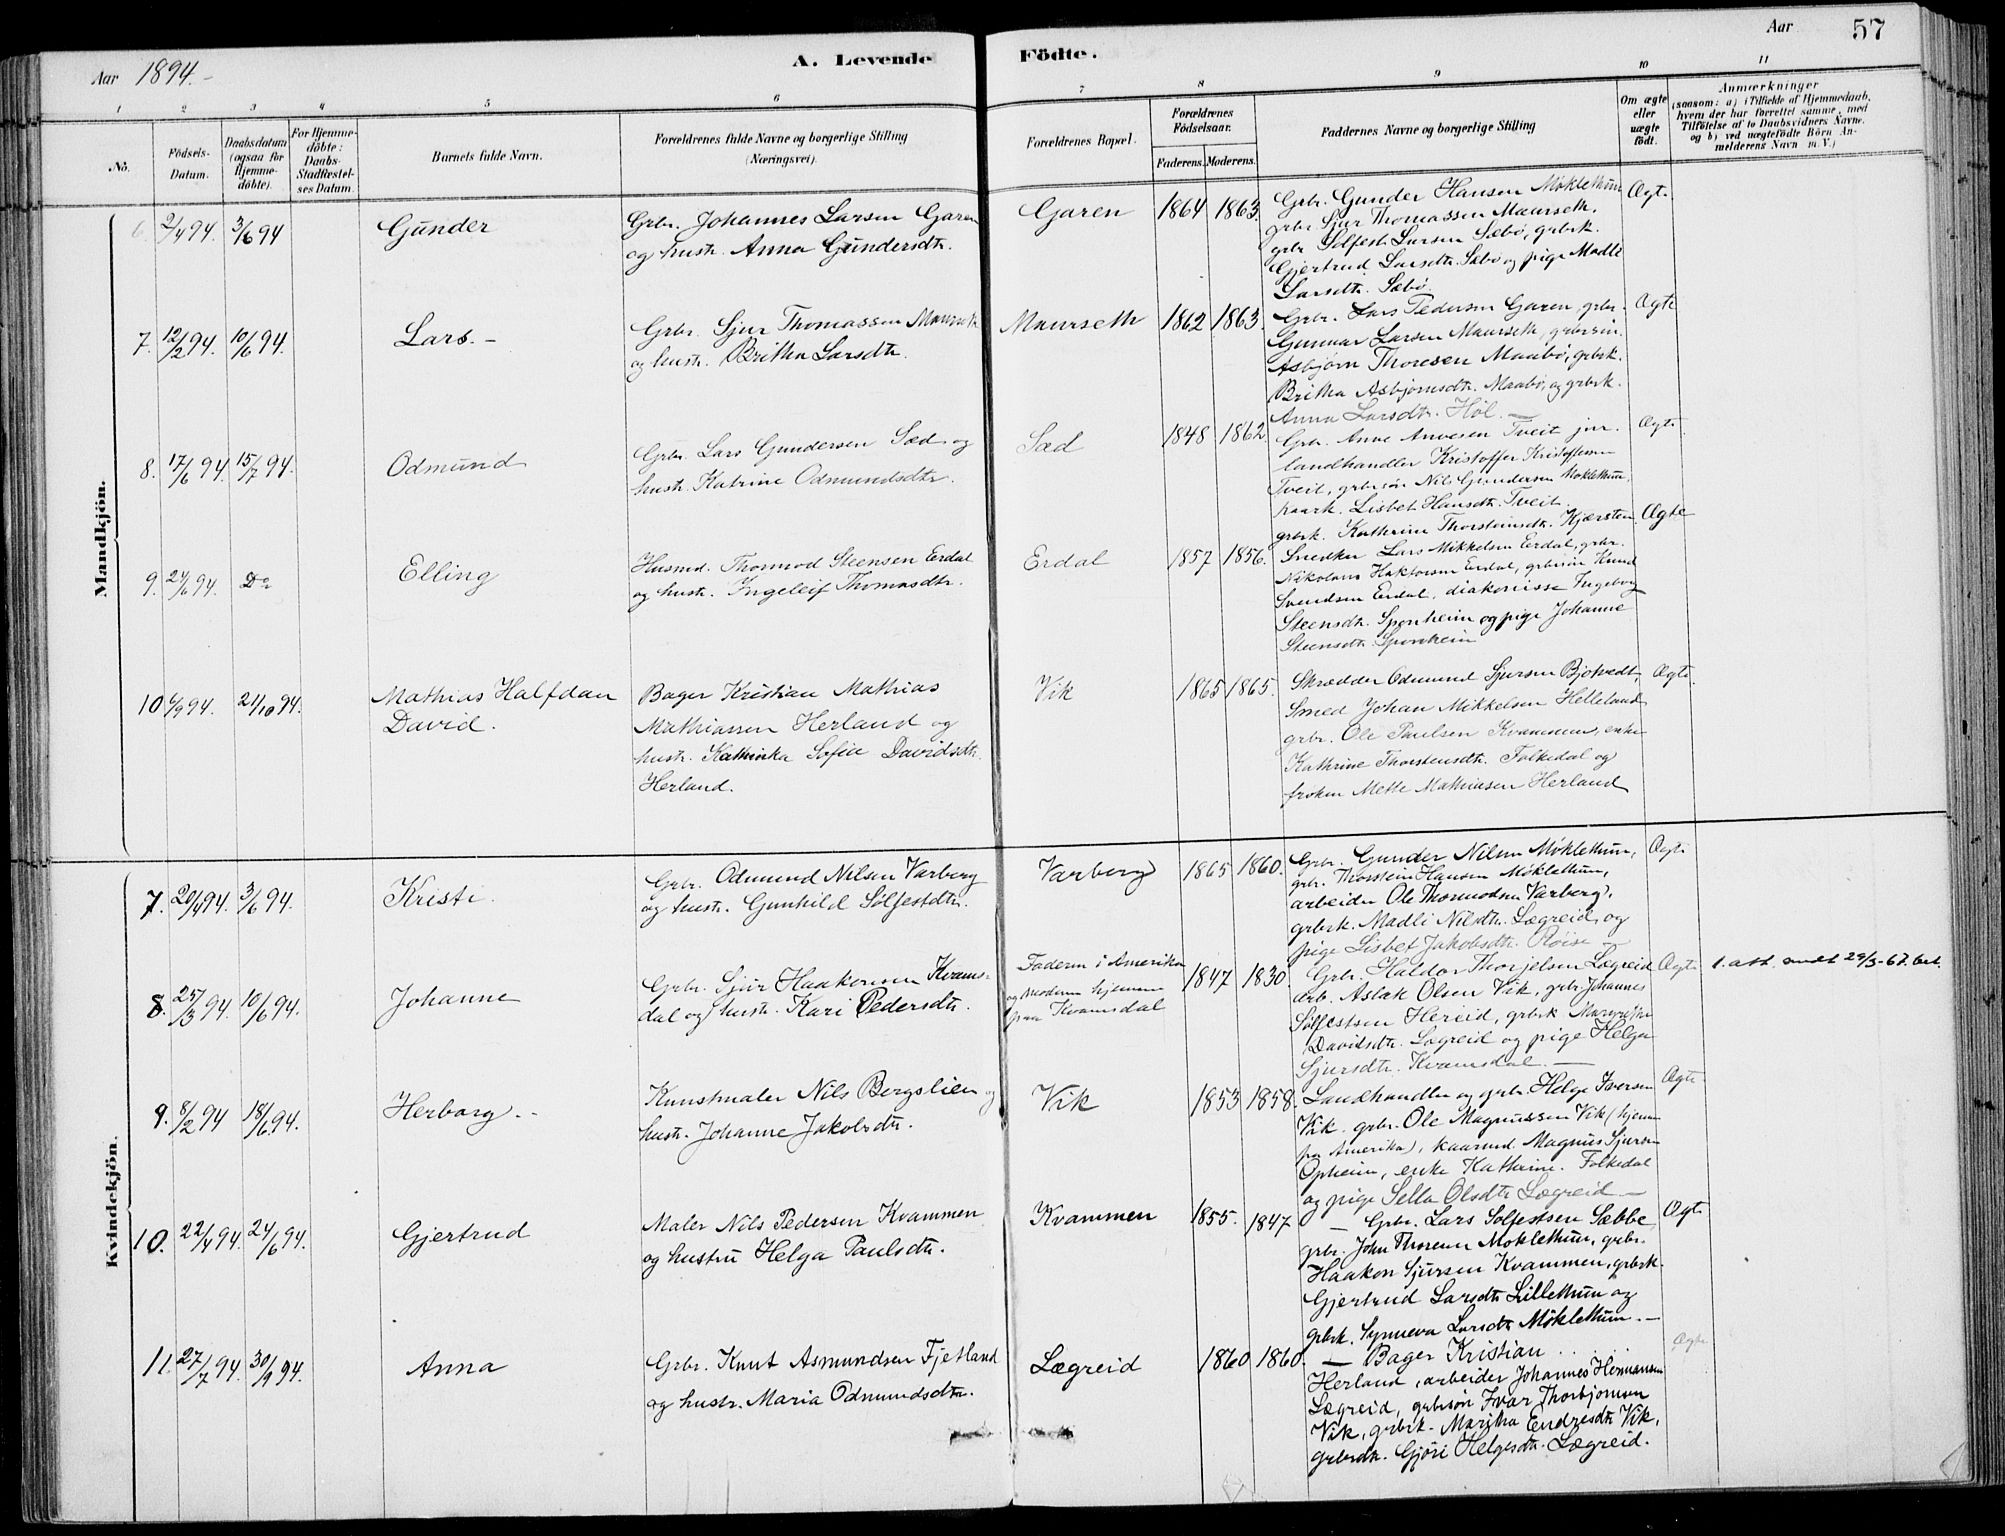 Aar 1894.-
A. Levende Födte.
Aar
57
1 2 3 4 5 6 7 8 9 10 11
No.
Födsels-Datum.
Daabsdatum (ogsaa for Hjemme-döbte).
For Hjemme-döbte: Daabs-Stadfæstel-ses Datum.
Barnets fulde Navn.
Forældrenes fulde Navne og borgerlige Stilling (Næringsvei).
Forældrenes Bopæl.
Forældrenes Födselsaar.
Faderens. Moderens.
Faddernes Navne og borgerlige Stilling
Om ægte eller uægte födt.
Anmærkninger
(saasom: a) i Tilfælde af Hjemmedaab,
hvem der har forrettet samme, med
Tilföielse af to Daabsvidners Navne.
og b) ved uægtefödte Börn An-
melderens Navn m.V.)
Mandkjön.
6. 2/4 94. 3/6 94
Gunder
Grbr. Johannes Larsen Garen
og hustr. Anna Gundersdtr.
Garen
1864 1863.
Grbr. Gunder Hansen Møklethun
grbr. Sjur Thomassen Maurseth,
grbr. Solfest Larsen Sæbø, grbrk.
Gjertrud Larsdtr. Sæbø og pige Madli
Larsdtr. Sæbø.
Ægt.
7. 12/2 94. 10/6 94.
Lars. -
Grbr. Sjur Thomassen Maurseth
og hustr. Britha Larsdtr.
Maurseth
1862 1863.
Grbr. Lars Pedersen Garen, grbr.
Gunnar Larsen Maurseth, grbrsøn
Asbjørn Thoresen Maabø, grbrk.
Britha Asbjørnsdtr. Maabø, og grbrk.
Anna Larsdtr. Høl. -
Ægte
8. 17/6 94. 15/7 94.
Odmund
Grbr. Lars Gundersen Sæd og
hustr. Katrine Odmundsdtr.
Sæd
1848 1862
Grbr. Anve Anvesen Tveit jnr.
landhandler Kristoffer Kristoffersen
Tveit, grbrsøn Nils Gundersen Møklethun,
kaark. Lisbet Hansdtr. Tveit,
grbrk. Kathrine Thorsteinsdtr. Kjærsten
Ægt.
9. 24/6 94. Do
Elling
Husmd. Thormod Steensen Erdal
og hustr. Ingeleif Thomasdtr.
Erdal
1857 1856.
Snedker Lars Mikkelsen Erdal, grbr.
Nikolaus Haktorsen Erdal, grbrsøn Knud
Svendsen Erdal, diakonisse Ingeborg
Steensdtr. Sponheim og pige Johanne
Steensdtr. Sponheim
Ægte
10 6/9 94. 21/10 94.
Mathias Halfdan
David.
Bager Kristian Mathias
Mathiassen Herland og
hustr. Kathinka Sofie Davidsdtr.
Herland.
Vik
1865 1865.
Skrædder Odmund Sjursen Bjotvedt,
Smed Johan Mikkelsen Helleland
grbr. Ole Paulsen Kvammen, enke
Kathrine Thorstensdtr. Folkedal og
frøken Mette Mathiasen Herland
Ægt.
Kvindekjön.
7. 20/4 94. 3/6 94.
Kristi.
Grbr. Odmund Nilsen Varberg
og hustr. Gunhild Solfestdtr.
Varberg
1865 1860.
Grbr. Gunder Nilsen Møklethun,
grbr. Thorstein Hansen Møklethun,
arbeider Ole Thormodsen Varberg,
grbrk. Madli Nilsdtr. Lægreid, og
pige Lisbet Jakobsdtr. Røise -
Ægt.
8. 25/3 94. 10/6 94.
Johanne
Grbr. Sjur Haakonsen Kvams-
dal og hustr. Kari Pedersdtr.
Faderen i Amerika
og moderen hjemme
paa Kvamsdal
1847 1830
Grbr. Haldor Thorjelsen Lægreid
arb. Aslak Olsen Vik, grbr. Johannes
Solfestsen Hereid, grbrk Margrethe
Davidsdtr. Lægreid og pige Helga
Sjursdtr. Kvamsdal. -
Ægt.
1. att. sendt 29/3-67.
9. 8/2 94 18/6 94.
Herborg. -
Kunstmaler Nils Bergslien og
hustr. Johanne Jakobsdtr.
Vik
1853 1858.
Landhandler og grbr. Helge Iversen
Vik. grbr. Ole Magnussen Vik (hjem
fra Amerika), kaarmd. Magnus Sjursen
Opheim, enke Kathrine Folkedal
og pige Sella Olsdtr. Lægreid -
Ægt.
10. 22/4 94. 24/6 94.
Gjertrud
Maler Nils Pedersen Kvammen
og hustru Helga Paulsdtr.
Kvammen
1855. 1847
- Grbr. Lars Solfestsen Sæbbe,
grbr. John Thoresen Møklethun, grbr.
Haakon Sjursen Kvammen, grbrk.
Gjertrud Larsdtr. Lillethun og
grbrk. Synneva Larsdtr. Møklethun. -
Ægt.
11. 27/7 94. 30/9 94.
Anna
Grbr. Knut Asmundsen Fjetland
og hustr. Maria Odmundsdtr.
Lægreid
1860 1860.
- Bager Kristian
Herland, arbeider Johannes Hermansen
Lægreid, grbrsøn Ivar Thorbjornsen
Vik, grbrk. Martha Endresdtr. Vik,
grbrdtr. Gjøri Helgesdtr. Lægreid.
Ægte